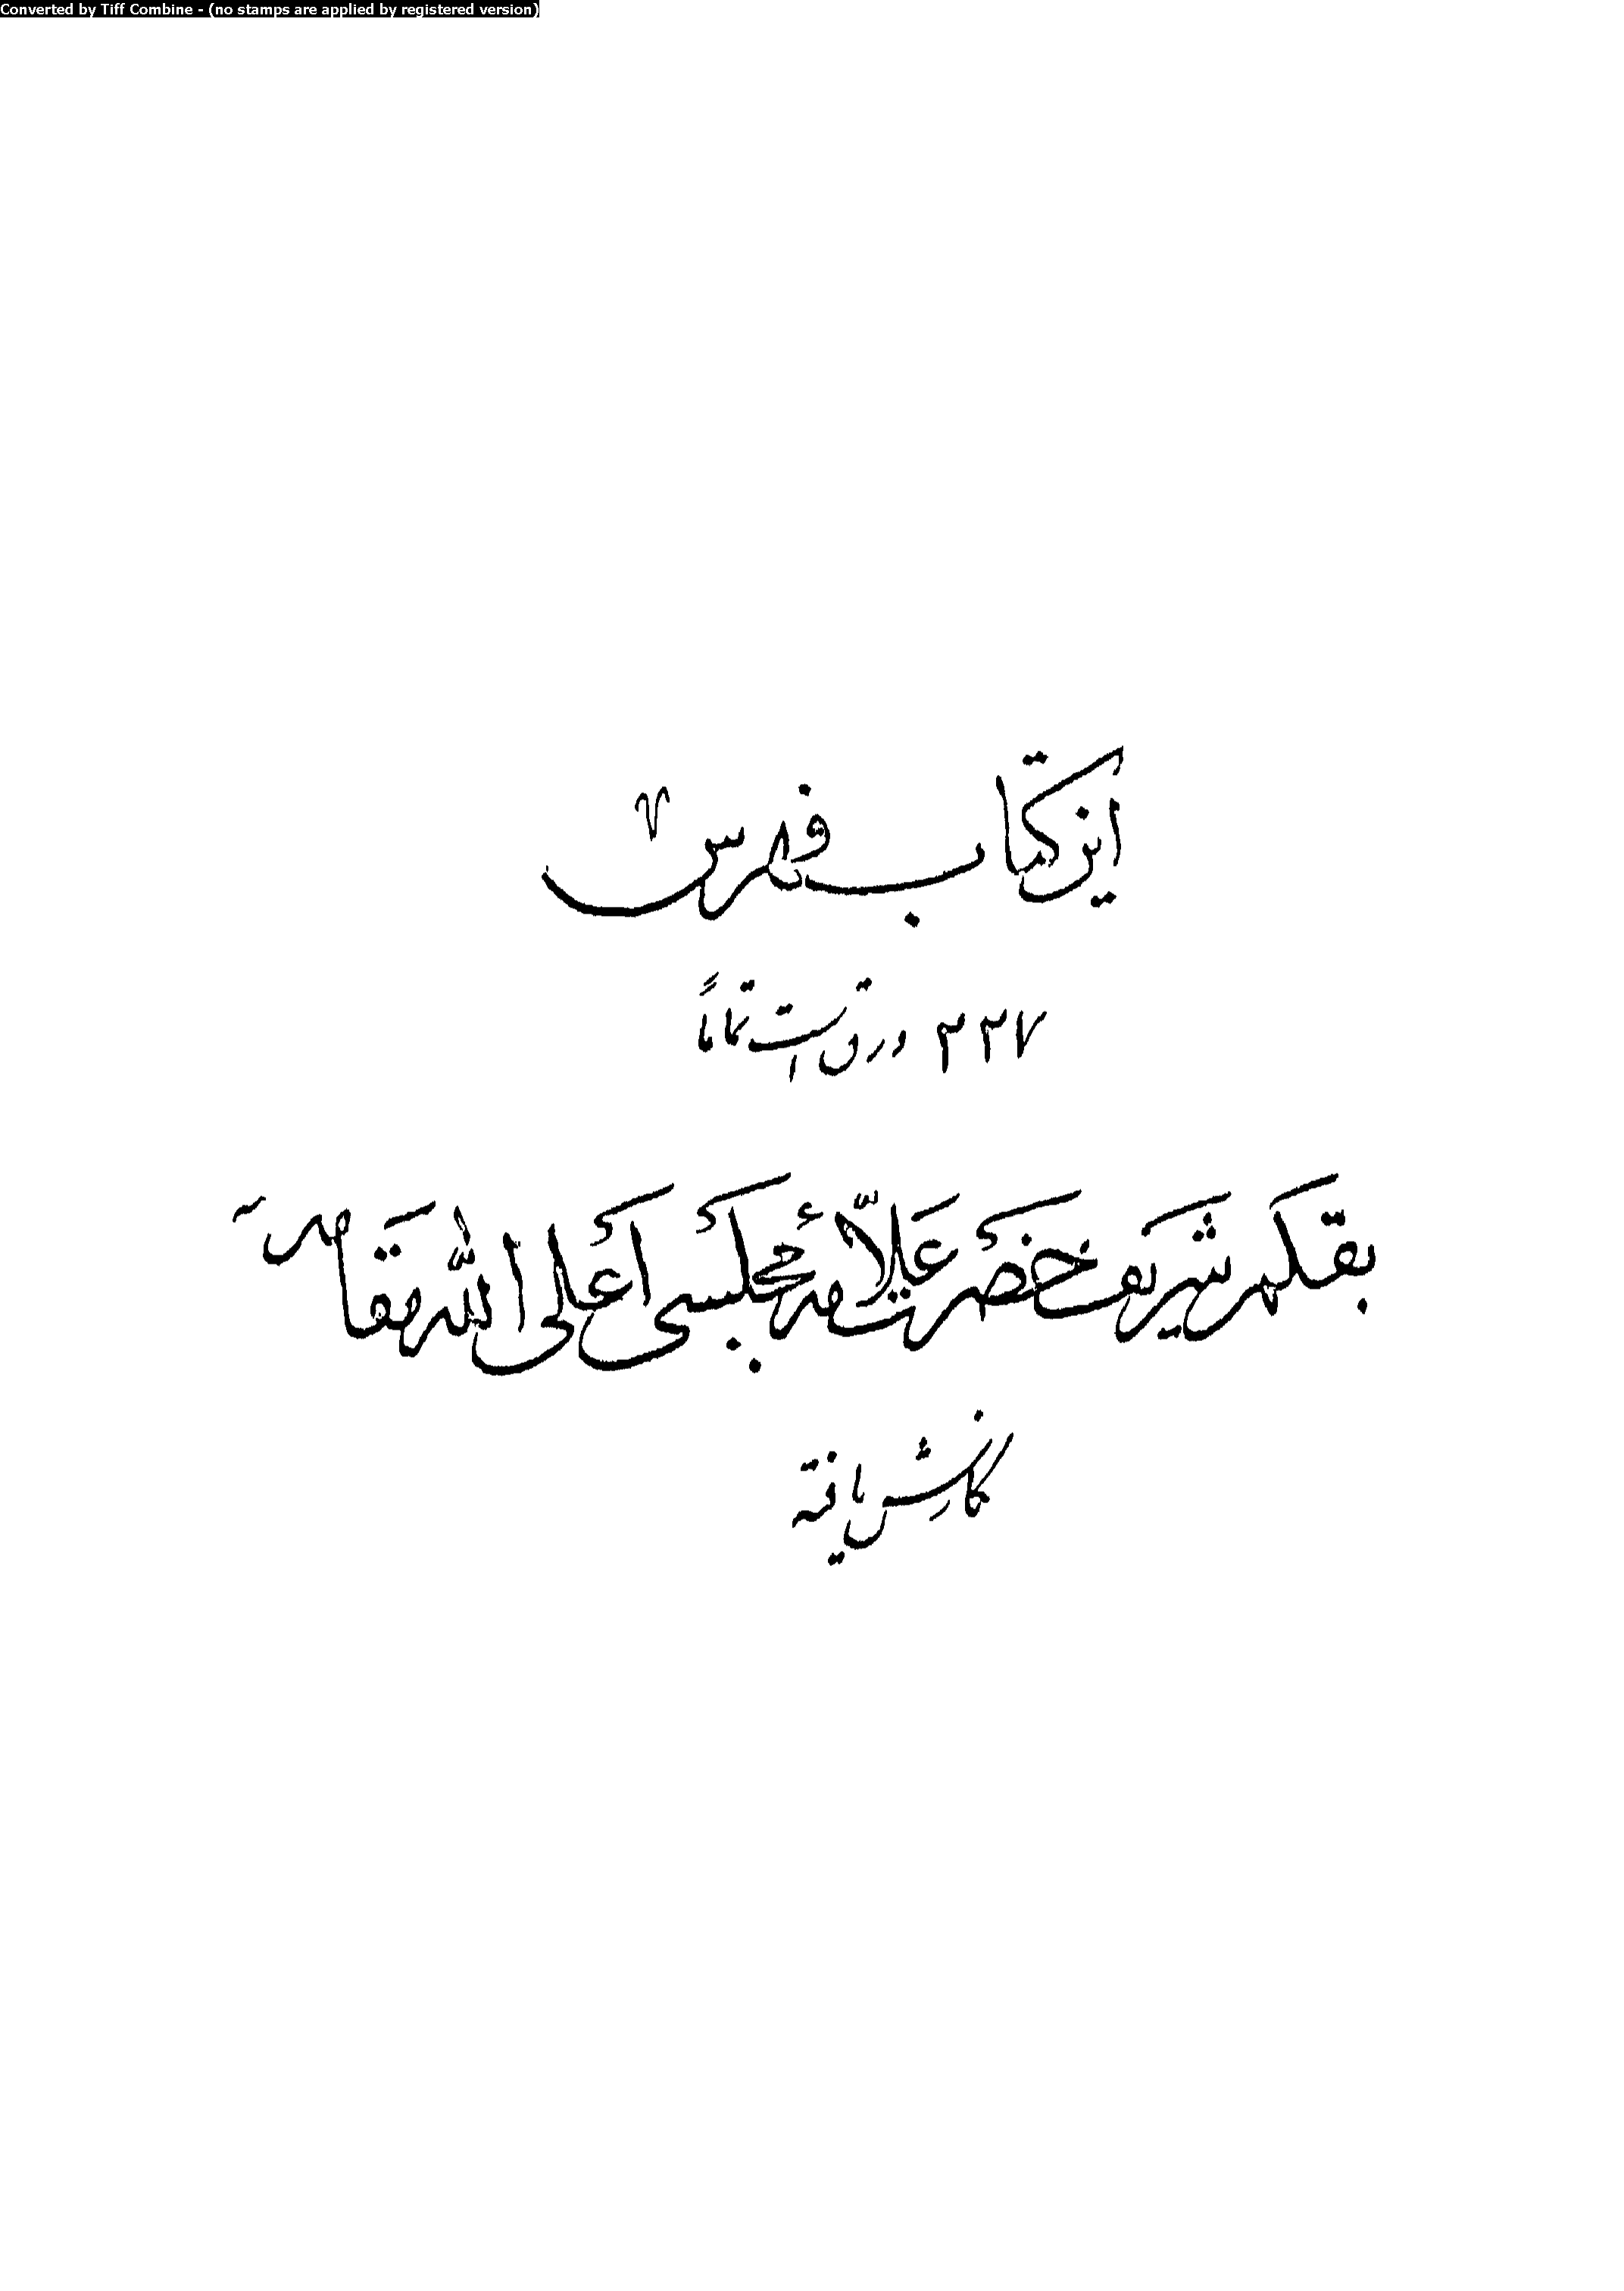 Converted by Tiff Combine - (no stamps are applied by registered version)
این کتاب فهرس
۲۳۷ ورق است تماماً
بقلم شریف حضرت علّامهٔ مجلسی أعلی اللّه مقامه
نگارش یافته